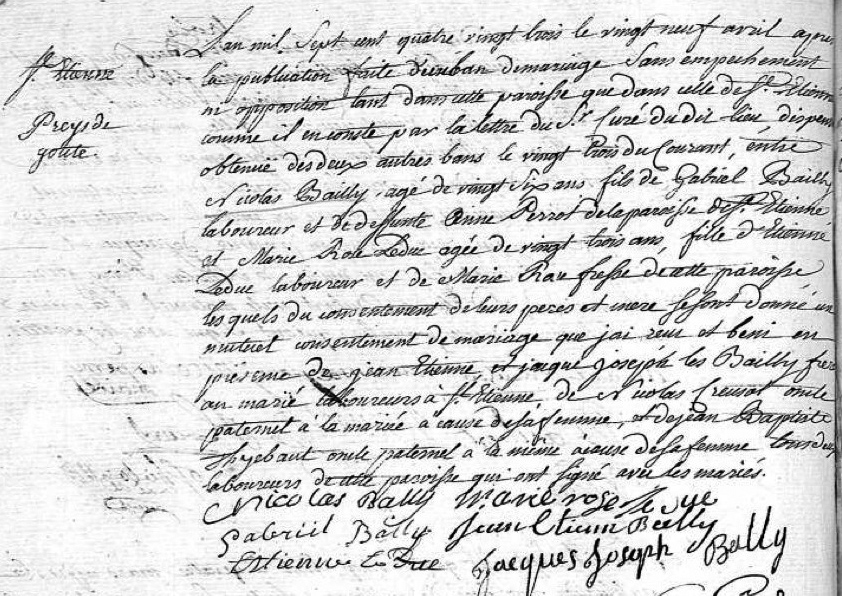 St. Etienne
Preys de
goute.
L'an mil Sept cent quatre vingt trois le vingt neuf avril apres
la publication faite d'un ban de mariage Sans empechement
ni opposition tant dans cette paroisse que dans celle de St. Etienne
comme il en conste par la lettre du Sr. Curé du dit lieu dispense
obtenuë des deux autres bans le vingt trois du Courant, entre
Nicolas Bailly, agé de vingt Six ans, fils de Gabriel Bailly
laboureur et de deffunte Anne Perrot de la paroisse de St. Etienne
et Marie Rose Leduc agée de vingt trois ans, fille d'Etienne
Leduc laboureur et de Marie de cette paroisse
les quels du consentement de leurs peres et mere se sont donné un
mutuel consentement de mariage que jai reçu et beni en
presence de jean Etienne, et jaque Joseph les Bailly freres
au marié laboureurs à St. Etienne, de Nicolas Creusat oncle
paternel à la mariée à cause de sa femme, et de jean Baptiste
Thyebaut oncle paternel à la même à cause de sa femme tous deux
laboureurs de cette paroisse qui ont signé avec les mariés.
Nicolas Bally Marie rose le due
Gabriil Bally Jean Etienn Bailly
Estienne le Duc Jacques Joseph Bally